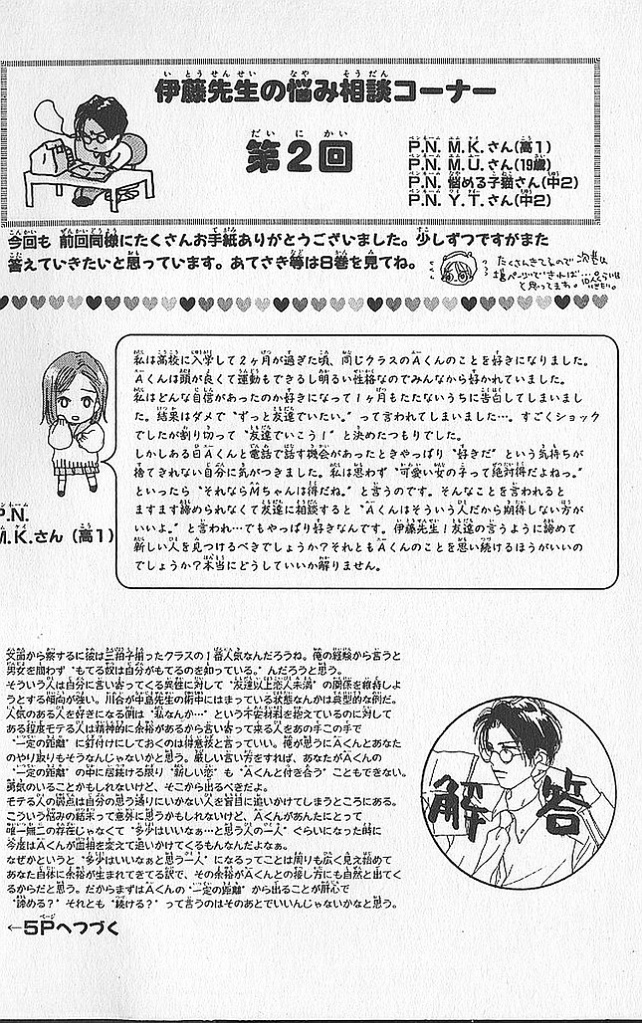 伊藤先生の悩み相談コーナー
第2回
P.N. M.K.さん(高1)
P.N. M.U.さん(19歳)
P.N. 悩める子猫さん(中2)
P.N. Y.T.さん(中2)
今回も 前回同様にたくさんお手紙ありがとうございました。少しずつですがまた
答えていきたいと思っています。あてさき等は8巻を見てね。
たくさんきてるので 次巻は
増ページできれば…。
と思ってます。
私は高校に入学して2ヶ月が過ぎた頃、同じクラスのAくんのことを好きになりました。
Aくんは頭が良くて運動もできるし明るい性格なのでみんなから好かれていました。
私はどんな自信があったのか好きになって1ヶ月もたたないうちに告白してしまいまし
た。結果はダメで“ずっと友達でいたい。”って言われてしまいました…。すごくショック
でしたが割り切って“友達でいこう!”と決めたつもりでした。
しかしある日Aくんと電話で話す機会があったときやっぱり“好きだ”という気持ちが
捨てきれない自分に気がつきました。私は思わず“可愛い女の子って絶対得だよねっ。”
といったら“それならMちゃんは得だね。”と言うのです。そんなことを言われると
ますます諦められなくて友達に相談すると“Aくんはそういう人だから期待しない方が
いいよ。”と言われ…でもやっぱり好きなんです。伊藤先生!友達の言うように諦めて
新しい人を見つけるべきでしょうか?それともAくんのことを思い続けるほうがいいの
でしょうか?本当にどうしていいか解りません。
P.N.
M.K.さん(高1)
文面から察するに彼は三拍子揃ったクラスの1番人気なんだろうね。俺の経験から言うと
男女を問わず“もてる奴は自分がもてるのを知っている。”んだろうと思う。
そういう人は自分に言い寄ってくる異性に対して“友達以上恋人未満”の関係を維持しよ
うとする傾向が強い。川合が中島先生の術中にはまっている状態なんかは典型的な例だ。
人気のある人を好きになる側は“私なんか…”という不安材料を抱えているのに対して
ある程度モテる人は精神的に余裕があるから言い寄って来る人をあの手この手で
“一定の距離”に釘付けにしておくのは得意技と言っていい。俺が思うにAくんとあなた
のやり取りもそうなんじゃないかと思う。厳しい言い方をすれば、あなたがAくんの
“一定の距離”の中に居続ける限り“新しい恋”も“Aくんと付き合う”こともできない。
勇気のいることかもしれないけど、そこから出るべきだよ。
モテる人の弱点は自分の思う通りにいかない人を盲目に追いかけてしまうところにある。
こういう悩みの結末って意外に思うかもしれないけど、Aくんがあんたにとって
唯一無二の存在じゃなくて“多少はいいなぁ…と思う人の一人”ぐらいになった時に
今度はAくんが血相を変えて追いかけてくるもんなんだよなぁ。
なぜかというと“多少はいいなぁと思う一人”になってことは周りも広く見え始めて
あなた自体に余裕が生まれてきてる訳で、その余裕がAくんとの接し方にも自然と出てく
るからだと思う。だからまずはAくんの“一定の距離”から出ることが肝心で
“諦める?”それとも“続ける?”って言うのはそのあとでいいんじゃないかなと思う。
←5Pへつづく
解答